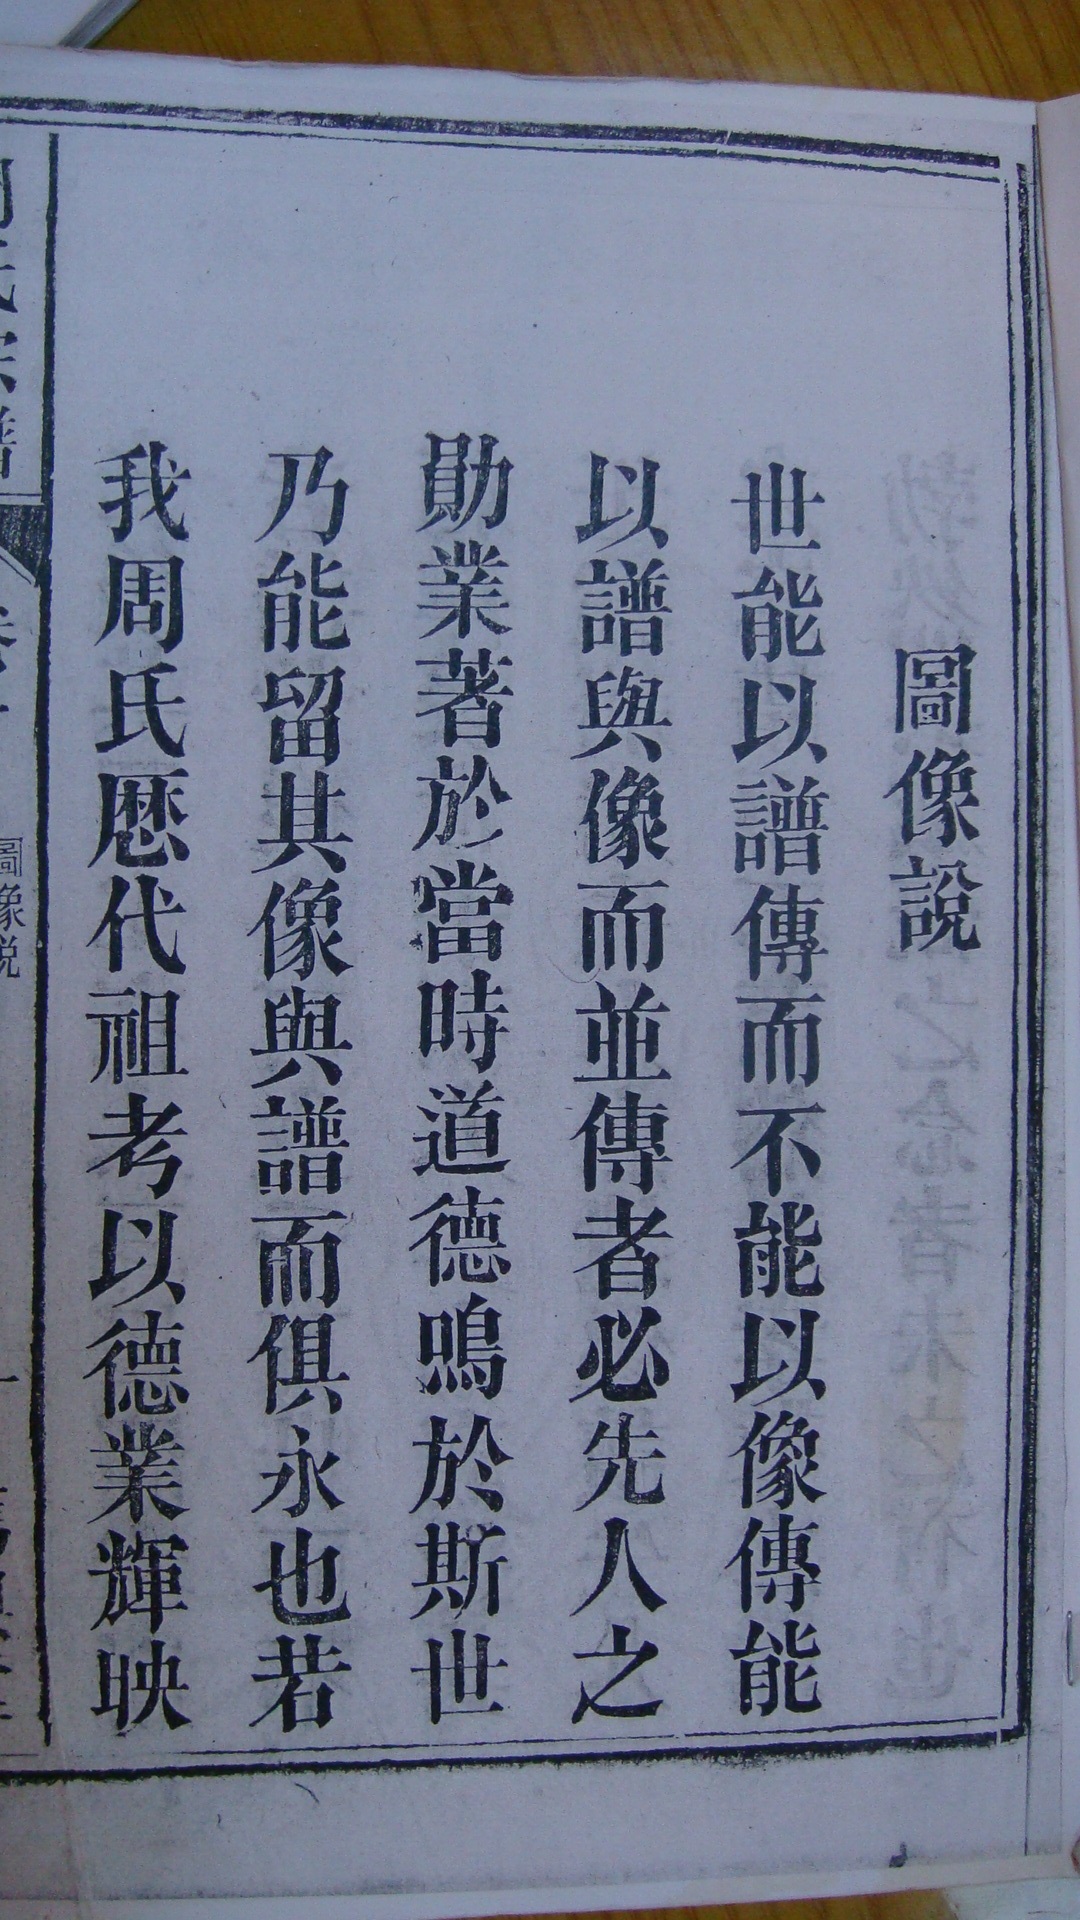 圖像說
世能以譜傳而不能以像傳能
以譜與像而並傳者必先人之
勛業著於當時道德鳴於斯世
乃能留其像與譜而俱永也若
我周氏歴代祖考以德業輝映
氏宗譜
圖像說